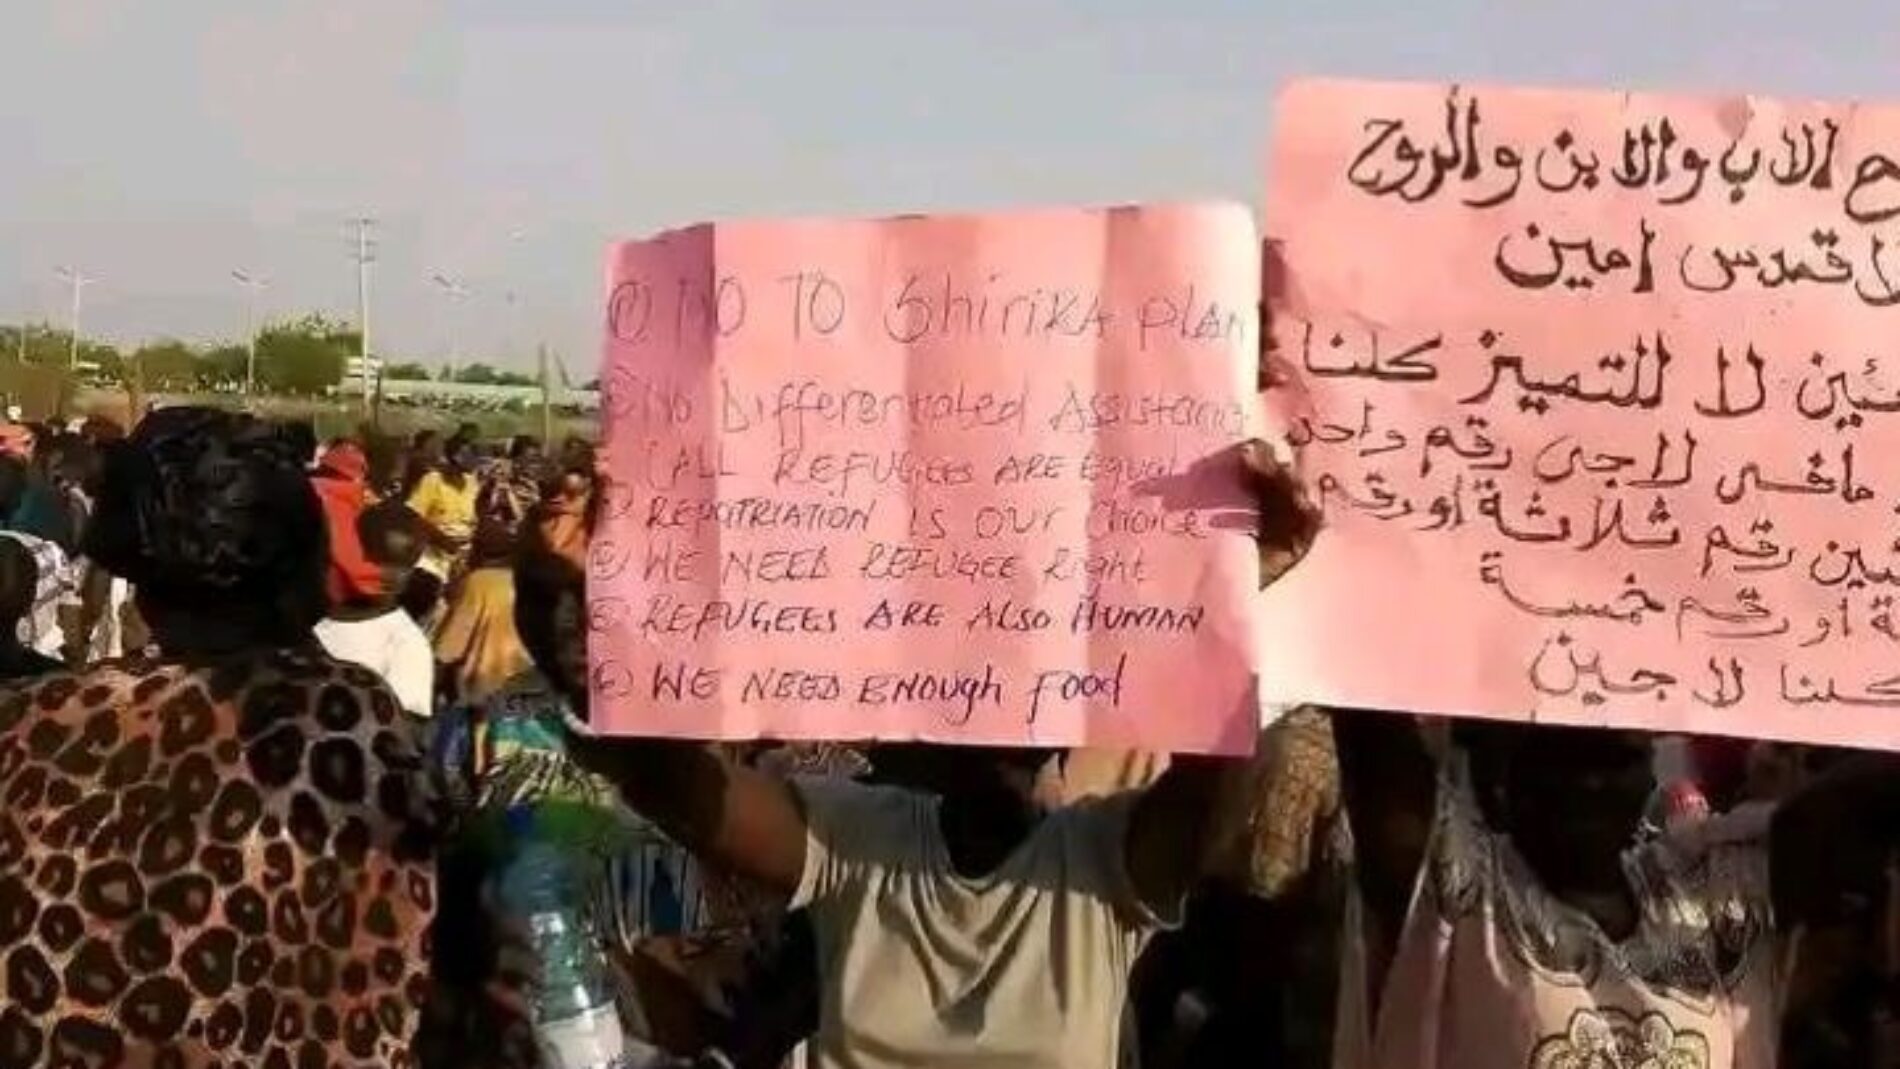 ① NO TO Shirika Plan
② No Differentiated Assistance
(ALL REFUGEES ARE Equal
REPATRIATION IS OUR Choice
WE NEED REFUGEE Right
REFUGEES ARE ALSO HUMAN
WE NEED ENOUGH FOOD
الاب والابن والروح
لاقمدس امين
لا للتمييز كلنا
مافى لاجى رقم واحد
رقم ثلاثة او رقم
او رقم خمسة
كلنا لاجين